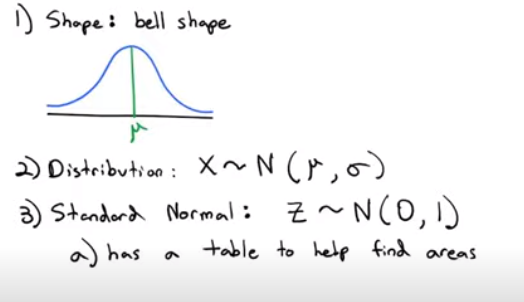 1) Shape: bell shape
μ
2) Distribution: X ~ N(μ, σ)
3) Standard Normal: Z ~ N(0, 1)
a) has a table to help find areas